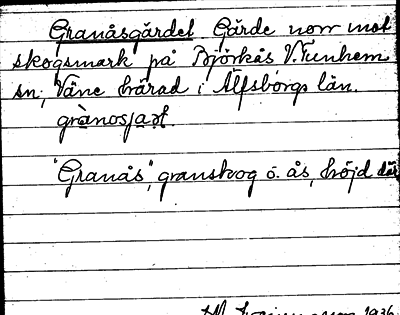 Granåsgärdet Gärde norr mot
skogsmark på Björkås V. Tunhem
sn, Väne härad i Älfsborgs län.
"Granås", granskog o. ås, höjd där
1936